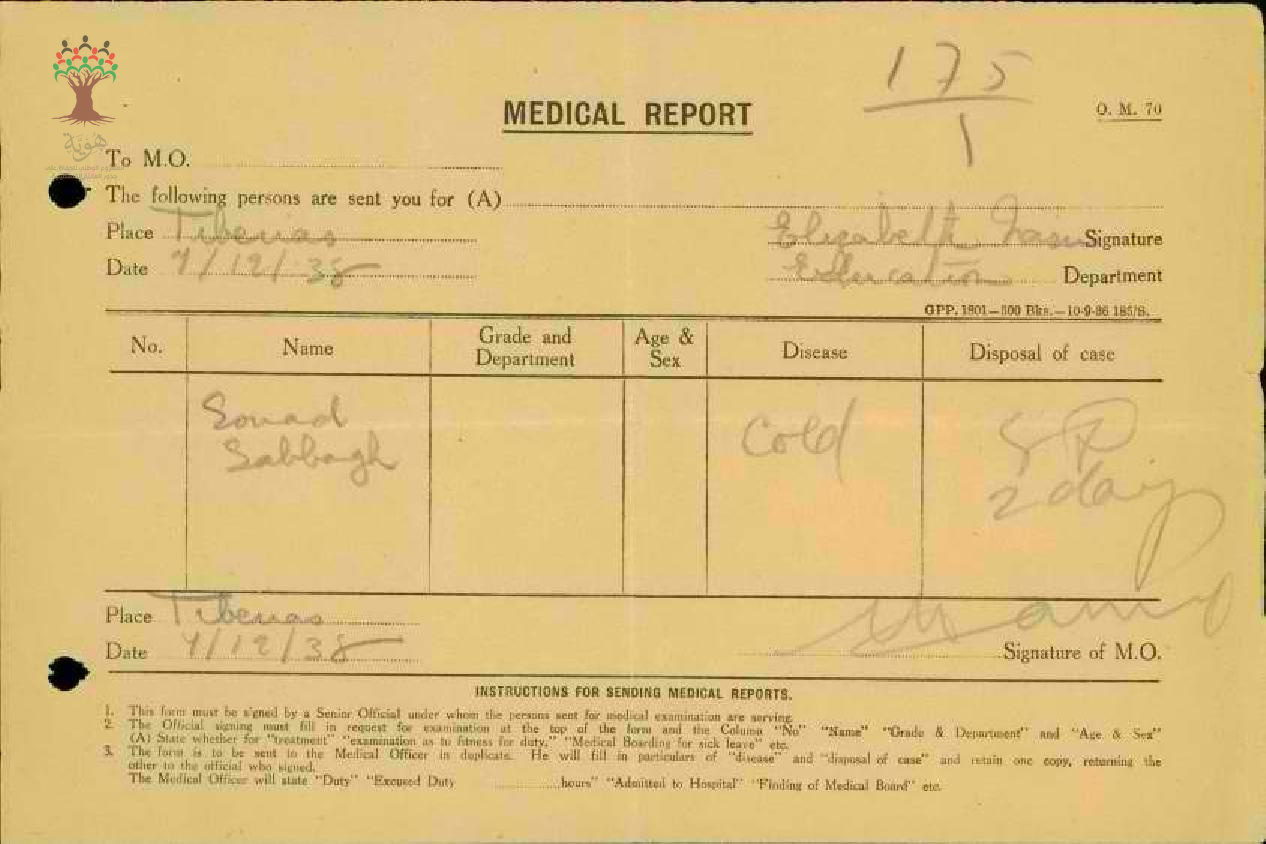 175
1
MEDICAL REPORT
O. M. 70
هوية
To M.O.
The following persons are sent you for (A)
Place Tiberias
Elizabeth Signature
Date 7/12/38
Education Department
GPP. 1801—500 Bks.—10-9-36 185/S.
No. Name Grade and Department Age & Sex Disease Disposal of case
Souad
Sabbagh
Cold
2 days
Place Tiberias
Date 7/12/38
Signature of M.O.
INSTRUCTIONS FOR SENDING MEDICAL REPORTS.
1. This form must be signed by a Senior Official under whom the persons sent for medical examination are serving.
2. The Official signing must fill in request for examination at the top of the form and the Column "No" "Name" "Grade & Department" and "Age & Sex"
(A) State whether for "treatment" "examination as to fitness for duty," "Medical Boarding for sick leave" etc.
3. The form is to be sent to the Medical Officer in duplicate. He will fill in particulars of "disease" and "disposal of case" and retain one copy, returning the
other to the official who signed.
The Medical Officer will state "Duty" "Excused Duty ............hours" "Admitted to Hospital" "Finding of Medical Board" etc.